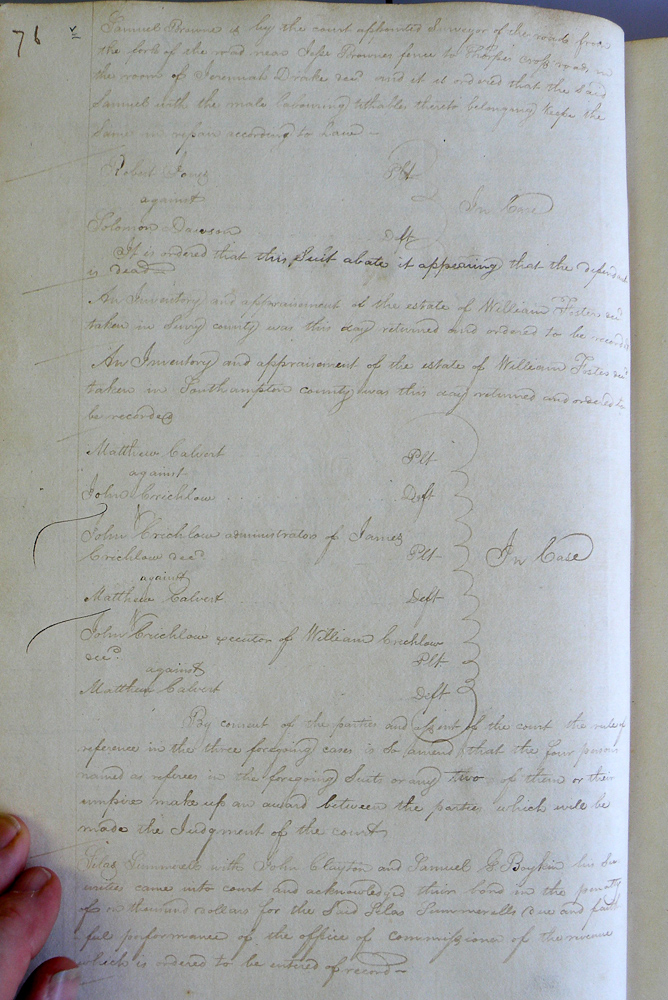 76
Samuel Browne is by the court appointed Surveyor of the roads from
the fork of the road near Jesse Brownes fence to Thorps road in
the room of Jeremiah Drake decd and it is ordered that the said
Samuel with the male labouring tithables thereto belonging keep the
same in repair according to Law –
Robert Jones Plt
against In Case
Solomon Dawson Deft
It is ordered that this Suit abate it appearing that the defendant
is dead
An Inventory and appraisement of the estate of William Foster decd
taken in Surry county was this day returned and ordered to be recorded
An Inventory and appraisement of the estate of William Foster decd
taken in Southampton county was this day returned and ordered to
be recorded
Matthew Calvert Plt
against
John Crichlow Deft
John Crichlow administrator of James
Crichlow decd. Plt In Case
against
Matthew Calvert Deft
John Crichlow executor of William Crichlow
decd. Plt
against
Matthew Calvert Deft
By consent of the parties and assent of the court the rule of
reference in the three foregoing cases is so amend that the four persons
named as referees in the foregoing Suits or any two of them or their
umpire make up an award between the parties which will be
made the Judgment of the court
Silas Summerell with John Clayton and Samuel G Boykin his Se
urities came into court and acknowledged their bond in the penalty
of thousand dollars for the said Silas Summerells due and faith
ful performance of the office of commissioner of the revenue
which is ordered to be entered of record –